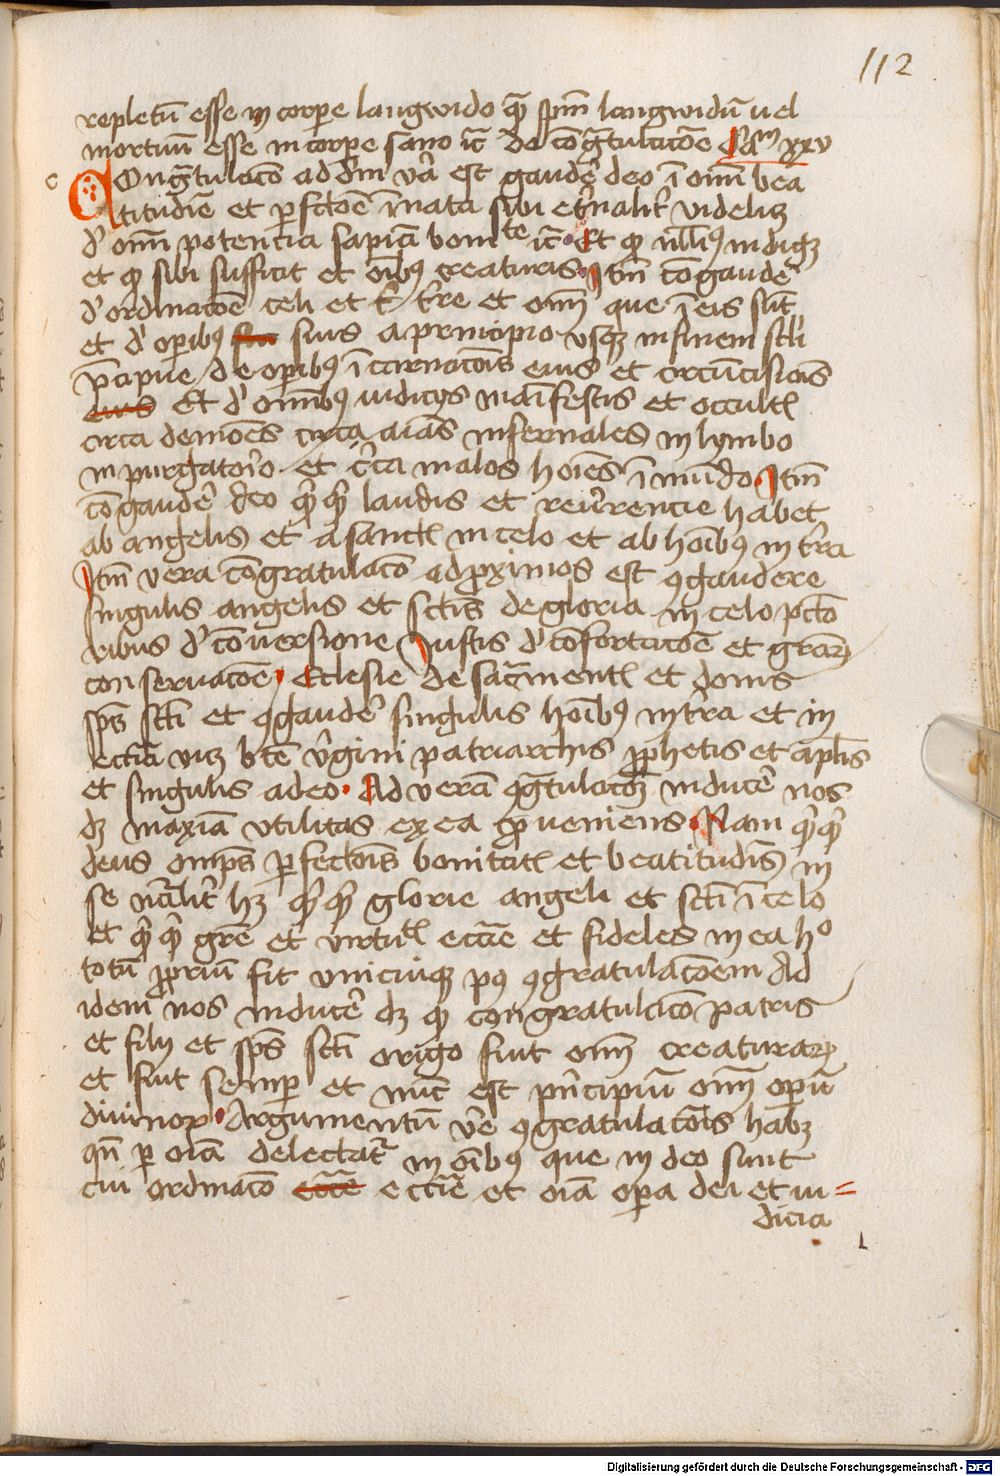 112
repletū esse in corpe langwido qȝ spm̄ langwidū uel
mortuū esse in corpe sano ic̄ De cōgr̄tulacōe Cam xxv
c
COngr̄tulacō ad dm̄ ūa est gaudē deo ī omī bea
titudīe et pfctōe īnata sibi et̄nalit̄ videliȝ
d' omī potencia sapīa bonite ic̄ Et qȝ nll'iꝰ indigȝ
et qȝ sibi sufficit et oībꝰ creaturis Itm̄ cōgaudē
d' ordinacōe celi et t̄re et omī que ī eis sūt
et d' opibꝰ suis a principio usqȝ in finem scli
p̄cipue de opibꝰ īcarnacōis eius et circūcisiōis
eius Et d' omībꝰ iudicijs maīfestis et occultꝭ
circa demōes circa aīas infernales in lymbo
in purgatorio et c̄ca malos hoīes ī mūdo Itm̄
cōgaudē deo qͥcqͥd laudis et reūrencie habet
ab angelis et a sanctꝭ in celo et ab hoībꝰ in t̄ra
Itm̄ vera cōgratulacō ad proximos est ꝯgaudere
singulis angelis et sctīs de gloria in celo pctō
ribus d' cōuersione Iustis d' cōfortacōe et graꝝ
conseruacōe Eclesie de sac̄mentꝭ et donis
spūs sctī et ꝯgaudē singulis hoībꝰ in t̄ra et in
ecctīa viȝ btē v̄gini patriarchis prophetis et aplīs
et singulis a deo Ad verā ꝯgr̄tulacōȝ inducē nos
dȝ maxīa utilitas ex ea proueniens Nam qͥcqͥd
deus omps perfectōis bonitatꝭ et beatitudīs in
se nālit̄ hȝ qͥcqͥd glorie angeli et sctī ī celo
et qͥcqͥd grē et virtutꝭ eccīe et fideles in ea hº
totū propriū fit unicuiqȝ pꝰ ꝯgratulacōem Ad
idem nos inducē dȝ qȝ congratulacō patris
et filij et spūs sctī origo fuit omī creaturaꝝ
et fuit semp et nūc est pn̄cipiū omī opū
diuinoꝝ Argumentū v̄e ꝯgratulacōis habȝ
qn̄ p oīa delectat̄ in oībꝰ que in deo sunt
cui ordinacō eccīe ecctīe et oīa opa dei et iu=
dicia
L
Digitalisierung gefördert durch die Deutsche Forschungsgemeinschaft - DFG